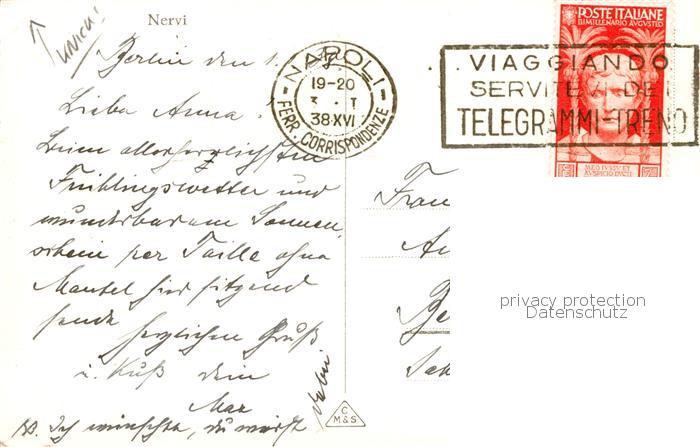 Nervi
Berlin den 1.
Liebe Anna!
Beim allerherrlichsten
Frühlingswetter und
wunderbarem Sonnen-
schein per Taille ohne
Mantel hier sitzend
sende
herzlichen Gruß
u. Kuß Dein
Max
NB. Ich wünschte, du wärst
dabei
NAPOLI
19-20
38 XVI
FERR. CORRISPONDENZE
VIAGGIANDO
SERVITEVI DEI
TELEGRAMMI-TRENO
POSTE ITALIANE
BIMILLENARIO AUGUSTEO
Frau
privacy protection
Datenschutz
C
M&S